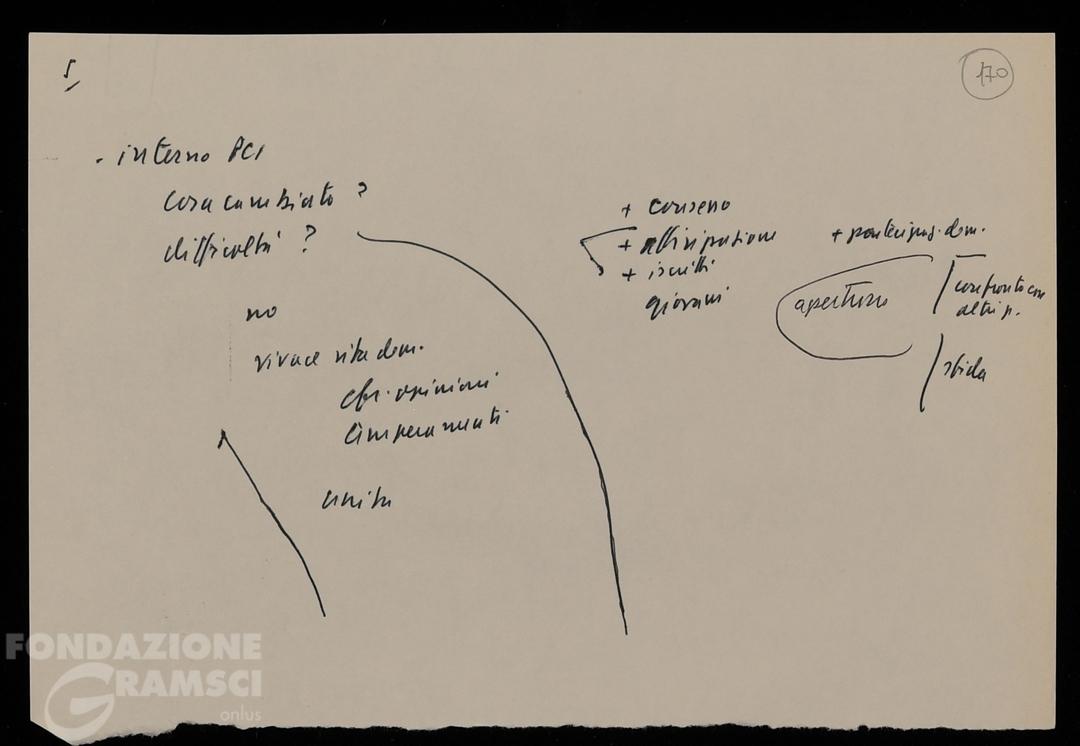 5
170
. interno PCI
cosa cambiato ?
difficoltà ?
no
vivace vita dem.
opinioni
temperamenti
unità
+ consenso
+
+ iscritti
giovani
+ partecipaz. dem.
apertura
confronto con
altri p.
sfida
FONDAZIONE
GRAMSCI
onlus